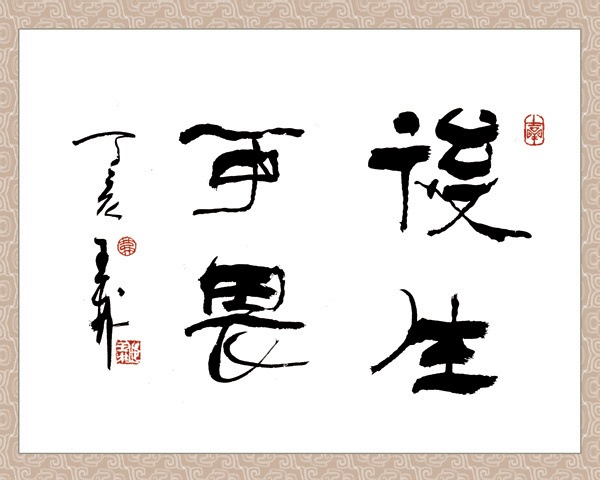 後生
可畏
丁亥 王